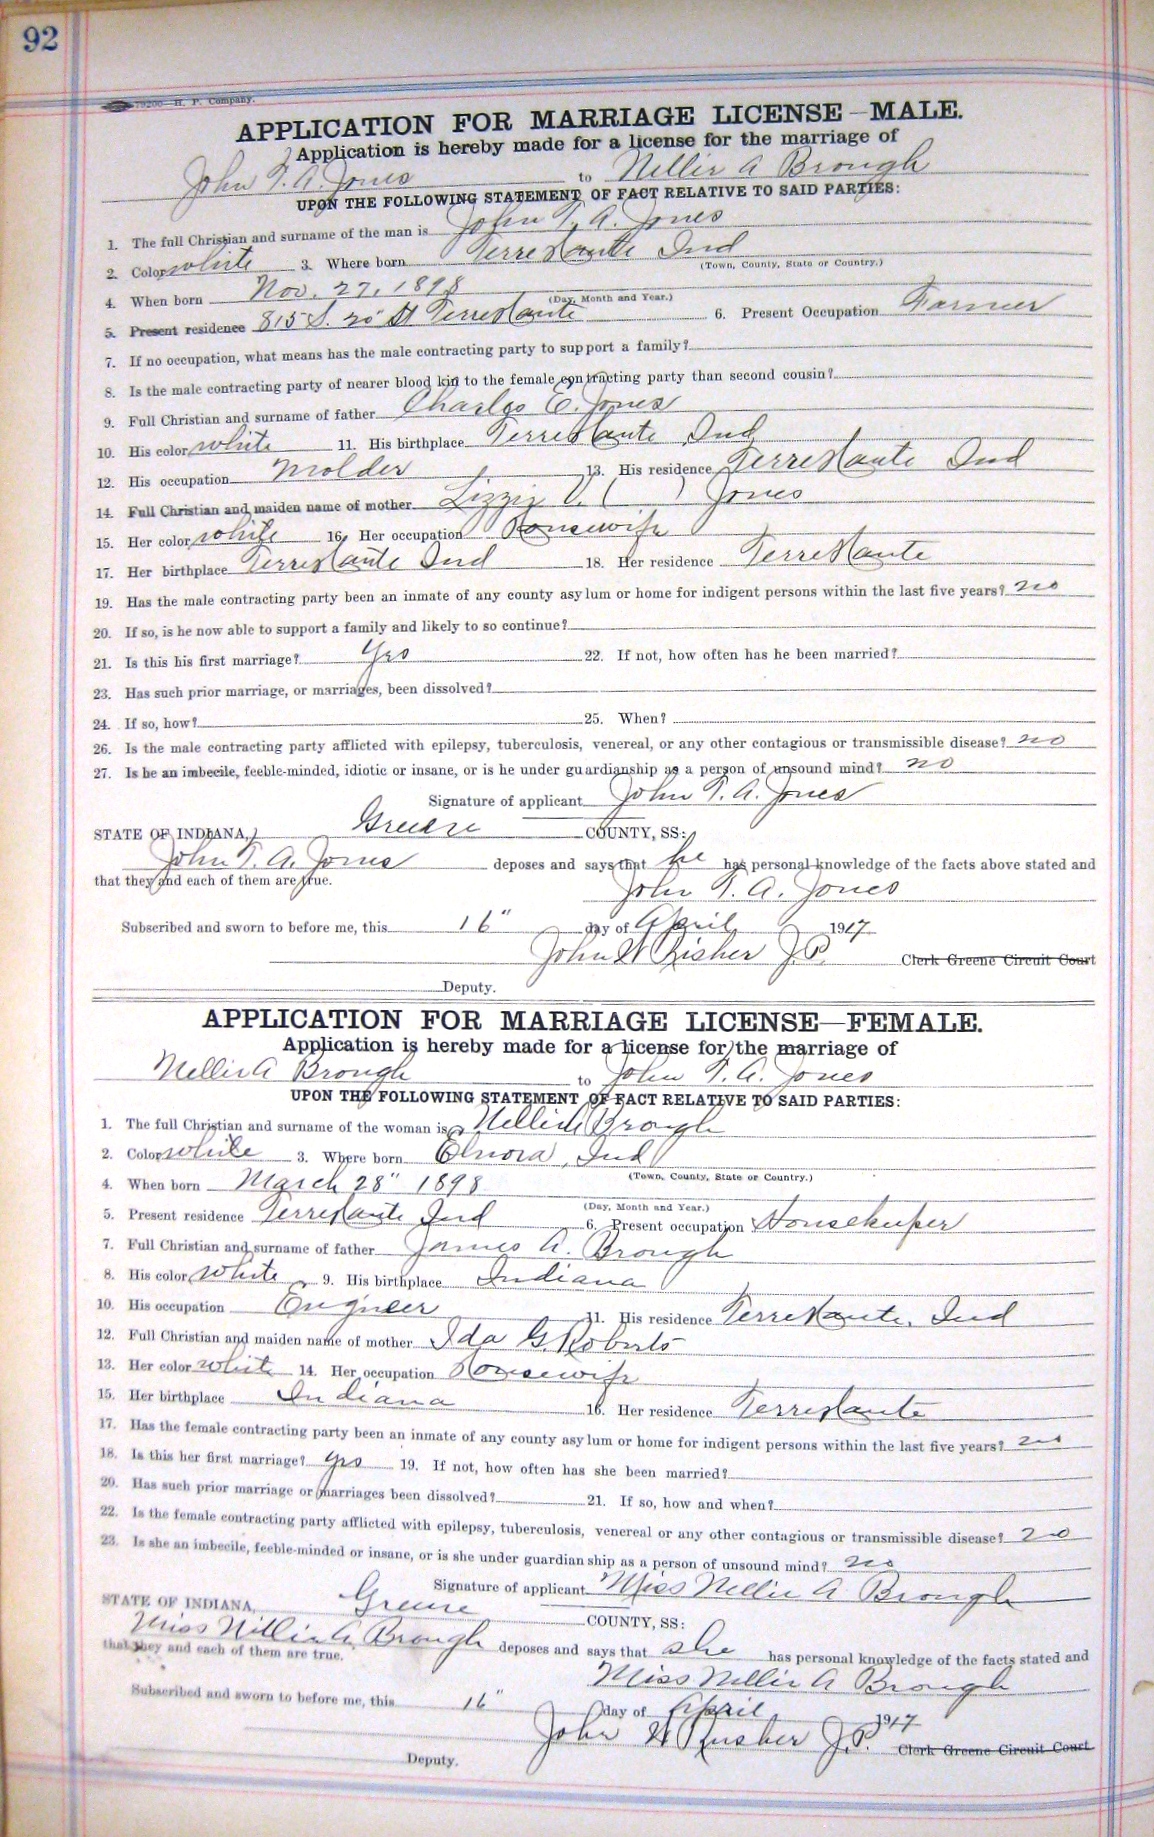 92
79200—H. P. Company.
APPLICATION FOR MARRIAGE LICENSE—MALE.
Application is hereby made for a license for the marriage of
John T. A. Jones to Nellie A Brough
UPON THE FOLLOWING STATEMENT OF FACT RELATIVE TO SAID PARTIES:
1. The full Christian and surname of the man is John T. A. Jones
2. Color white 3. Where born Terre Haute Ind
(Town, County, State or Country.)
4. When born Nov. 27, 1898
(Day, Month and Year.)
5. Present residence 815 S. 20" St Terre Haute 6. Present Occupation Farmer
7. If no occupation, what means has the male contracting party to support a family?
8. Is the male contracting party of nearer blood kin to the female contracting party than second cousin?
9. Full Christian and surname of father Charles E. Jones
10. His color white 11. His birthplace Terre Haute Ind
12. His occupation Molder 13. His residence Terre Haute Ind
14. Full Christian and maiden name of mother Lizzie V. ( ) Jones
15. Her color white 16. Her occupation Housewife
17. Her birthplace Terre Haute Ind 18. Her residence Terre Haute
19. Has the male contracting party been an inmate of any county asylum or home for indigent persons within the last five years? no
20. If so, is he now able to support a family and likely to so continue?
21. Is this his first marriage? Yes 22. If not, how often has he been married?
23. Has such prior marriage, or marriages, been dissolved?
24. If so, how? 25. When?
26. Is the male contracting party afflicted with epilepsy, tuberculosis, venereal, or any other contagious or transmissible disease? no
27. Is he an imbecile, feeble-minded, idiotic or insane, or is he under guardianship as a person of unsound mind? no
Signature of applicant John T. A. Jones
STATE OF INDIANA, Greene COUNTY, SS:
John T. A. Jones deposes and says that he has personal knowledge of the facts above stated and
that they and each of them are true.
John T. A. Jones
Subscribed and sworn to before me, this 16" day of April 1917
John W Risher J.P. Clerk Greene Circuit Court
Deputy.
APPLICATION FOR MARRIAGE LICENSE—FEMALE.
Application is hereby made for a license for the marriage of
Nellie A Brough to John T. A. Jones
UPON THE FOLLOWING STATEMENT OF FACT RELATIVE TO SAID PARTIES:
1. The full Christian and surname of the woman is Nellie A Brough
2. Color white 3. Where born Elnora, Ind
(Town, County, State or Country.)
4. When born March 28" 1898
(Day, Month and Year.)
5. Present residence Terre Haute Ind 6. Present occupation Housekeeper
7. Full Christian and surname of father James A. Brough
8. His color white 9. His birthplace Indiana
10. His occupation Engineer 11. His residence Terre Haute, Ind
12. Full Christian and maiden name of mother Ida G. Roberts
13. Her color white 14. Her occupation Housewife
15. Her birthplace Indiana 16. Her residence Terre Haute
17. Has the female contracting party been an inmate of any county asylum or home for indigent persons within the last five years? no
18. Is this her first marriage? yes 19. If not, how often has she been married?
20. Has such prior marriage or marriages been dissolved? 21. If so, how and when?
22. Is the female contracting party afflicted with epilepsy, tuberculosis, venereal or any other contagious or transmissible disease? no
23. Is she an imbecile, feeble-minded or insane, or is she under guardianship as a person of unsound mind? no
Signature of applicant Miss Nellie A Brough
STATE OF INDIANA, Greene COUNTY, SS:
Miss Nellie A Brough deposes and says that she has personal knowledge of the facts stated and
that they and each of them are true.
Miss Nellie A Brough
Subscribed and sworn to before me, this 16" day of April 1917
John W Risher J.P. Clerk Greene Circuit Court
Deputy.